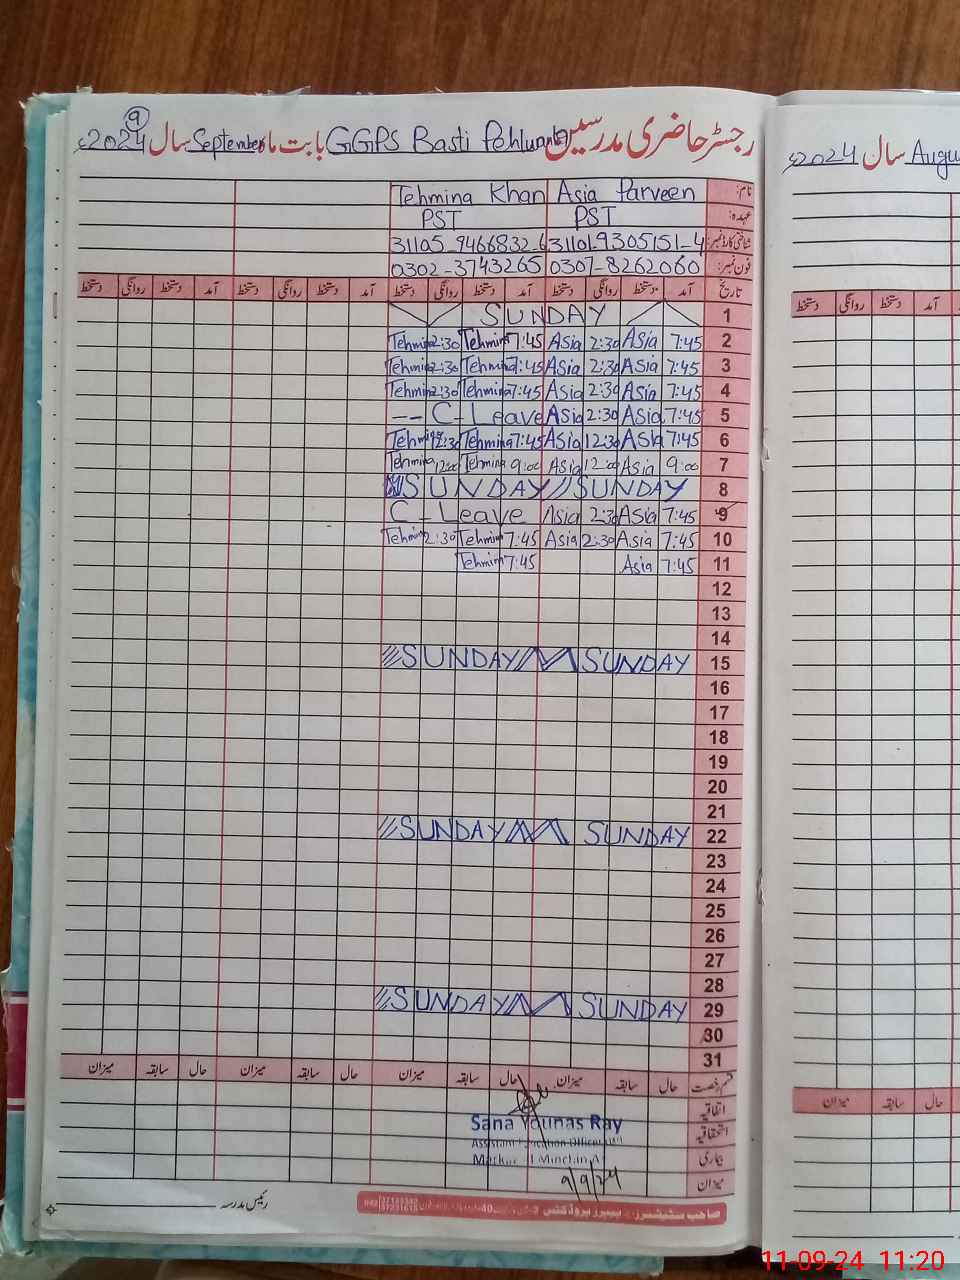 رجسٹر حاضری مدرسین GGPS Basti Pehluanan بابت ماہ September سال 2024ء
9
2024ء سال Augu
نام: Asia Parveen Tehmina Khan
عہدہ: PST PST
شناختی کارڈ نمبر: 31101-9305151-4 31105-9466832-6
فون نمبر: 0307-8262060 0302-3743265
تاریخ آمد دستخط روانگی دستخط آمد دستخط روانگی دستخط آمد دستخط روانگی دستخط آمد دستخط روانگی دستخط
آمد دستخط روانگی دستخط
1 SUNDAY
2 7:45 Asia 2:30 Asia 7:45 Tehmina 2:30 Tehmina
3 7:45 Asia 2:30 Asia 7:45 Tehmina 2:30 Tehmina
4 7:45 Asia 2:30 Asia 7:45 Tehmina 2:30 Tehmina
5 7:45 Asia 2:30 Asia -- C-Leave
6 7:45 Asia 12:30 Asia 7:45 Tehmina 12:30 Tehmina
7 9:00 Asia 12:00 Asia 9:00 Tehmina 12:00 Tehmina
8 SUNDAY SUNDAY
9 7:45 Asia 2:30 Asia C-Leave
10 7:45 Asia 2:30 Asia 7:45 Tehmina 2:30 Tehmina
11 7:45 Asia 7:45 Tehmina
12
13
14
15 SUNDAY SUNDAY
16
17
18
19
20
21
22 SUNDAY SUNDAY
23
24
25
26
27
28
29 SUNDAY SUNDAY
30
31
قسم رخصت حال سابقہ میزان حال سابقہ میزان حال سابقہ میزان حال سابقہ میزان
حال سابقہ میزان
اتفاقیہ
استحقاقیہ
بیماری
میزان
Sana Younas Ray
Assistant Education Officer
Markaz
9/9/24
رئیس مدرسہ
صاحب سٹیشنرز پیپرز پروڈکٹس
11-09-24 11:20